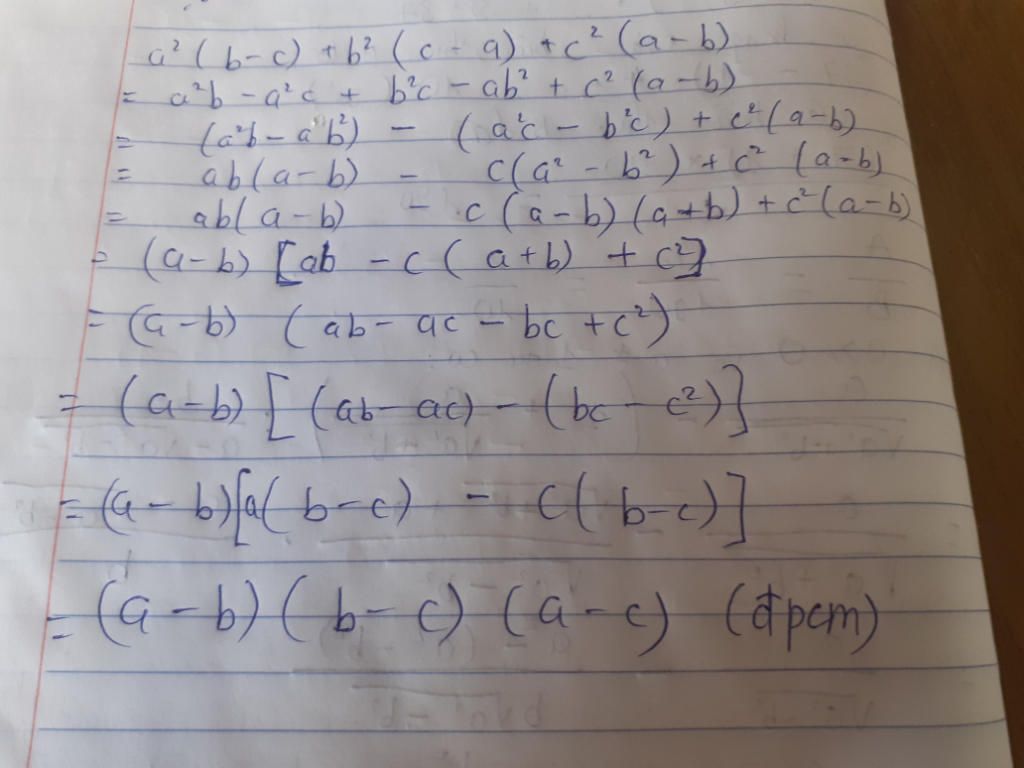 a²(b-c) + b²(c-a) + c²(a-b)
= a²b - a²c + b²c - ab² + c²(a-b)
= (a²b - ab²) - (a²c - b²c) + c²(a-b)
= ab(a-b) - c(a² - b²) + c²(a-b)
= ab(a-b) - c(a-b)(a+b) + c²(a-b)
= (a-b)[ab - c(a+b) + c²]
= (a-b)(ab - ac - bc + c²)
= (a-b)[(ab - ac) - (bc - c²)]
= (a-b)[a(b-c) - c(b-c)]
= (a-b)(b-c)(a-c) (đpcm)